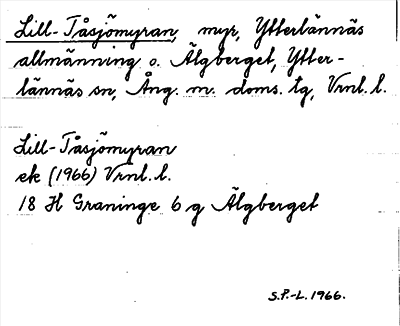 Lill-Tåsjömyran, myr, Ytterlännäs
allmänning o. Älgberget, Ytter-
lännäs sn, Ång. m. doms. tg, Vrnl. l.
Lill-Tåsjömyran
ek (1966) Vrnl. l.
18 H Graninge 6 g Älgberget
S.P.-L. 1966.